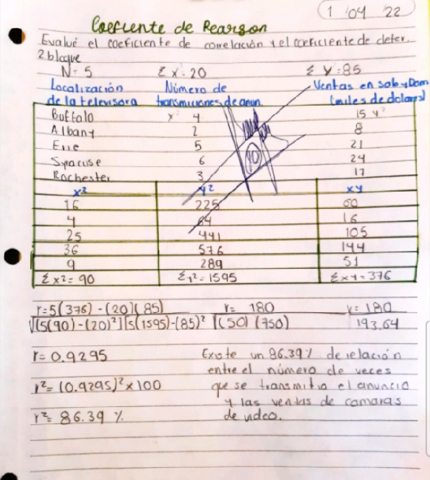 1 04 22
Coeficiente de Pearson
Evalué el coeficiente de correlación y el coeficiente de deter.
2 bloque
N=5 Σx=20 Σy=85
Localización Número de Ventas en Sab y Dom
de la televisora transmisiones de anun. (miles de dolares)
Buffalo x 4 15 y
Albany 2 8
Erie 5 21
Syracuse 6 24
Rochester 3 17
10
x² y² xy
16 225 60
4 64 16
25 441 105
36 576 144
9 289 51
Σx²=90 Σy²=1595 Σxy=376
r=5(376)-(20)(85) r= 180 r= 180
√[5(90)-(20)²][5(1595)-(85)² √(50)(750) 193.64
r=0.9295 Existe un 86.39% de relación
entre el número de veces
r²=(0.9295)²×100 que se transmitio el anuncio
y las ventas de camaras
r²=86.39 % de video.